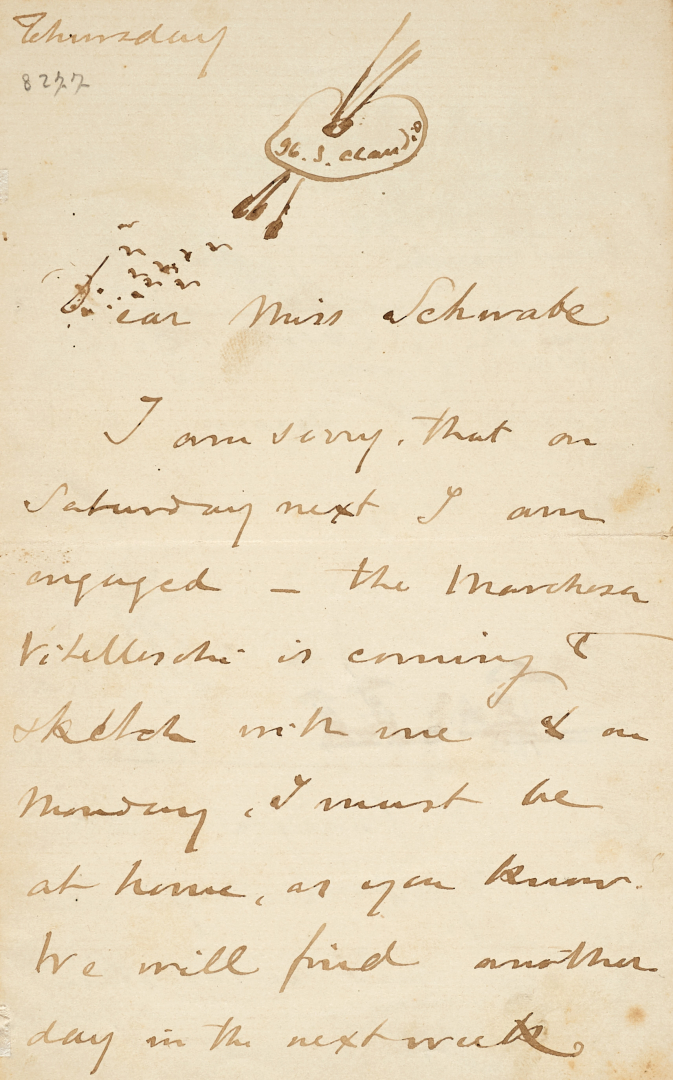 Thursday
8277
96. S. Claudio
Dear Miss Schwabe
I am sorry, that on
Saturday next I am
engaged – the Marchesa
Vitelleschi is coming to
sketch with me & on
Monday, I must be
at home, as you know.
We will find another
day in the next week,